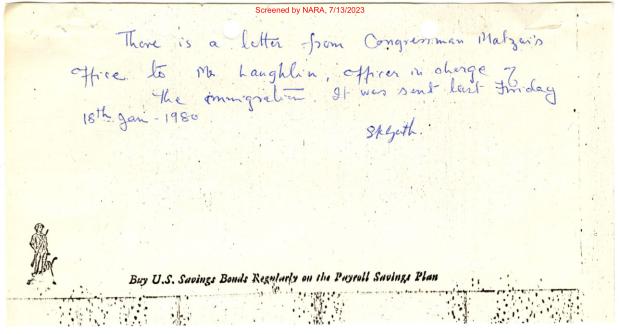 Screened by NARA, 7/13/2023
There is a letter from Congressman Matzai's
office to Mr Laughlin, officer in charge of
the immigration. It was sent last Friday
18th Jan - 1980
Buy U.S. Savings Bonds Regularly on the Payroll Savings Plan